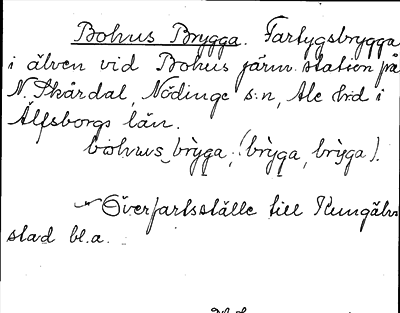 Bohus Brygga. Fartygsbrygga
i älven vid Bohus järnv. station på
N. Skårdal, Nödinge s:n, Ale hd i
Älfsborgs län.
bωhωs brỳga, (brỳga, brỳga).
Överfartsställe till Kungälvs
stad bl.a.